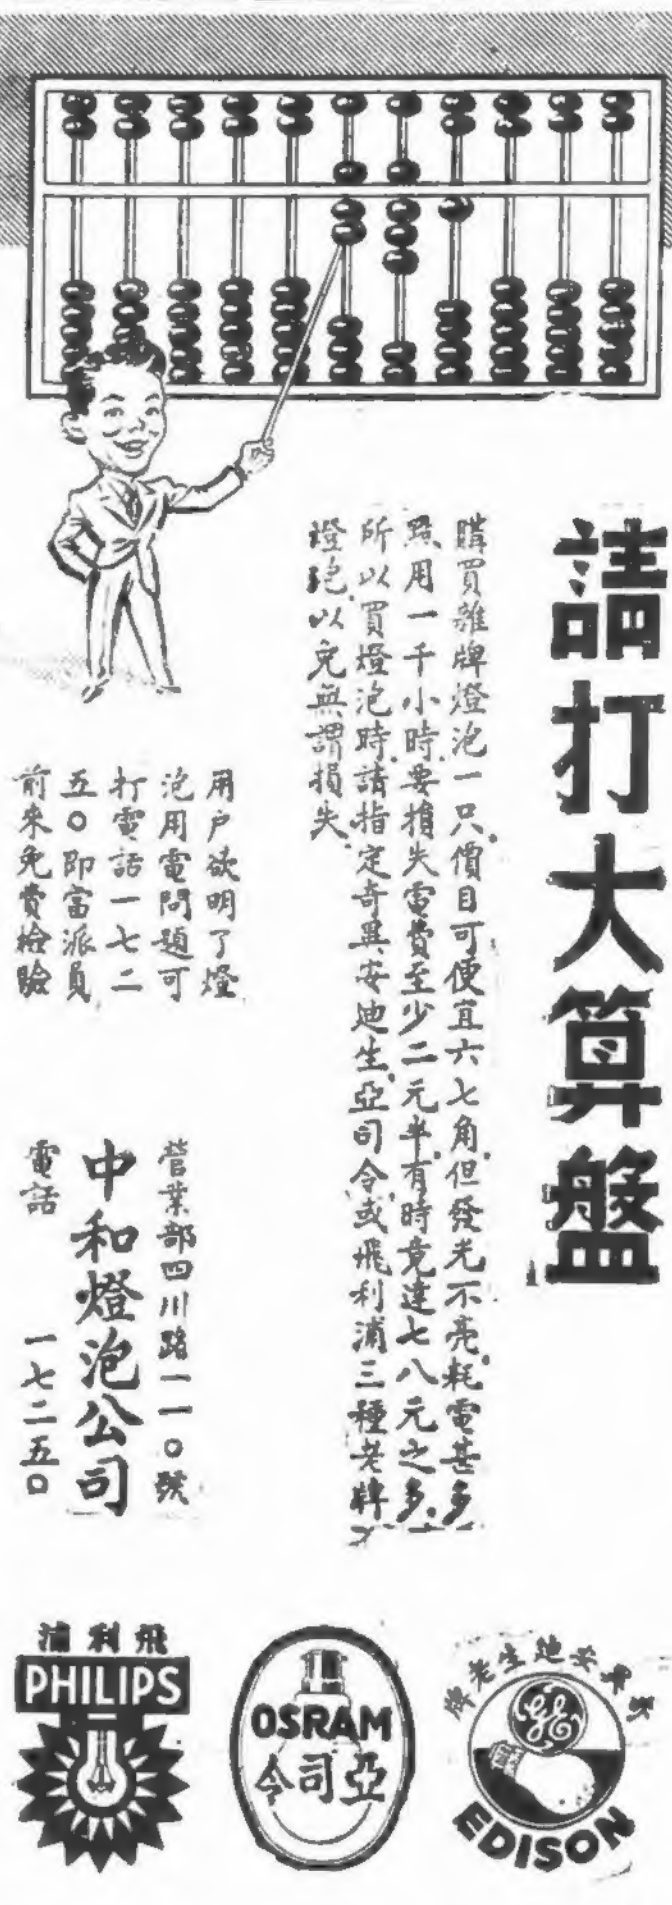 請打大算盤
購買雜牌燈泡一只價目可便宜六七角但發光不亮耗電甚多
點用一千小時要損失電費至少二元半有時竟達七八元之多
所以買燈泡時請指定奇異安迪生亞司令或飛利浦三種老牌
燈泡以免無謂損失
用户欲明了燈
泡用電問題可
打電話一七二
五〇即當派員
前來免費檢驗
營業部四川路一一〇號
中和燈泡公司
電話 一七二五〇
奇異安迪生老牌
GE
EDISON
OSRAM
亞司令
飛利浦
PHILIPS